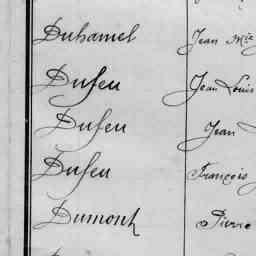 Duhamel Jean Mie
Dufeu Jean Louis
Dufeu Jean
Dufeu François
Dumont Pierre